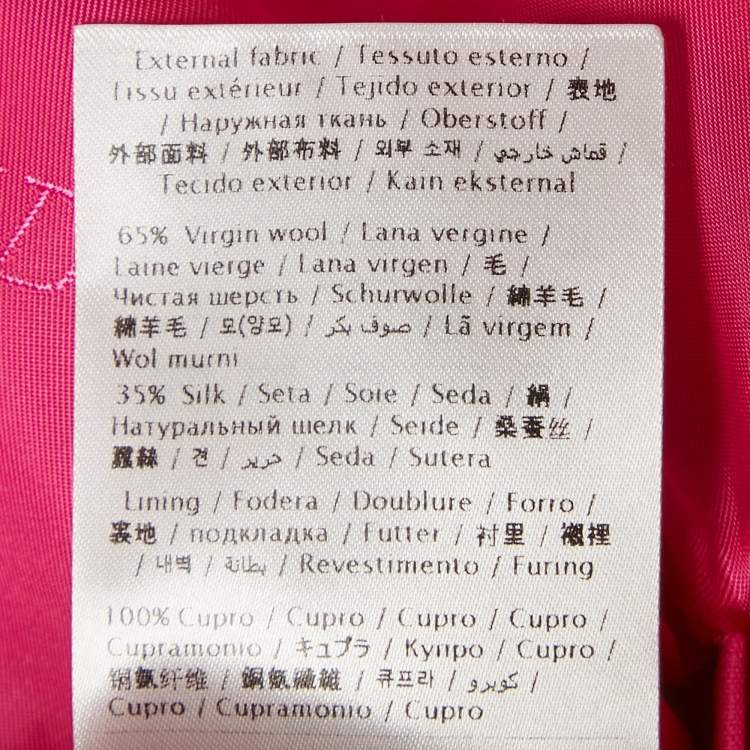 External fabric / Tessuto esterno /
Tissu extérieur / Tejido exterior / 表地
/ Наружная ткань / Oberstoff /
外部面料 / 外部布料 / 외부 소재 / قماش خارجي /
Tecido exterior / Kain eksternal
65% Virgin wool / Lana vergine /
Laine vierge / Lana virgen / 毛 /
Чистая шерсть / Schurwolle / 綿羊毛 /
綿羊毛 / 모(양모) / صوف بكر / Lã virgem /
Wol murni
35% Silk / Seta / Soie / Seda / 絹 /
Натуральный шелк / Seide / 桑蚕丝 /
蠶絲 / 견 / حرير / Seda / Sutera
Lining / Fodera / Doublure / Forro /
裏地 / подкладка / Futter / 衬里 / 襯裡
/ 내벽 / بطانة / Revestimento / Furing
100% Cupro / Cupro / Cupro / Cupro /
Cupramonio / キュプラ / Купро / Cupro /
铜氨纤维 / 銅氨纖維 / 큐프라 / كوبرو /
Cupro / Cupramonio / Cupro